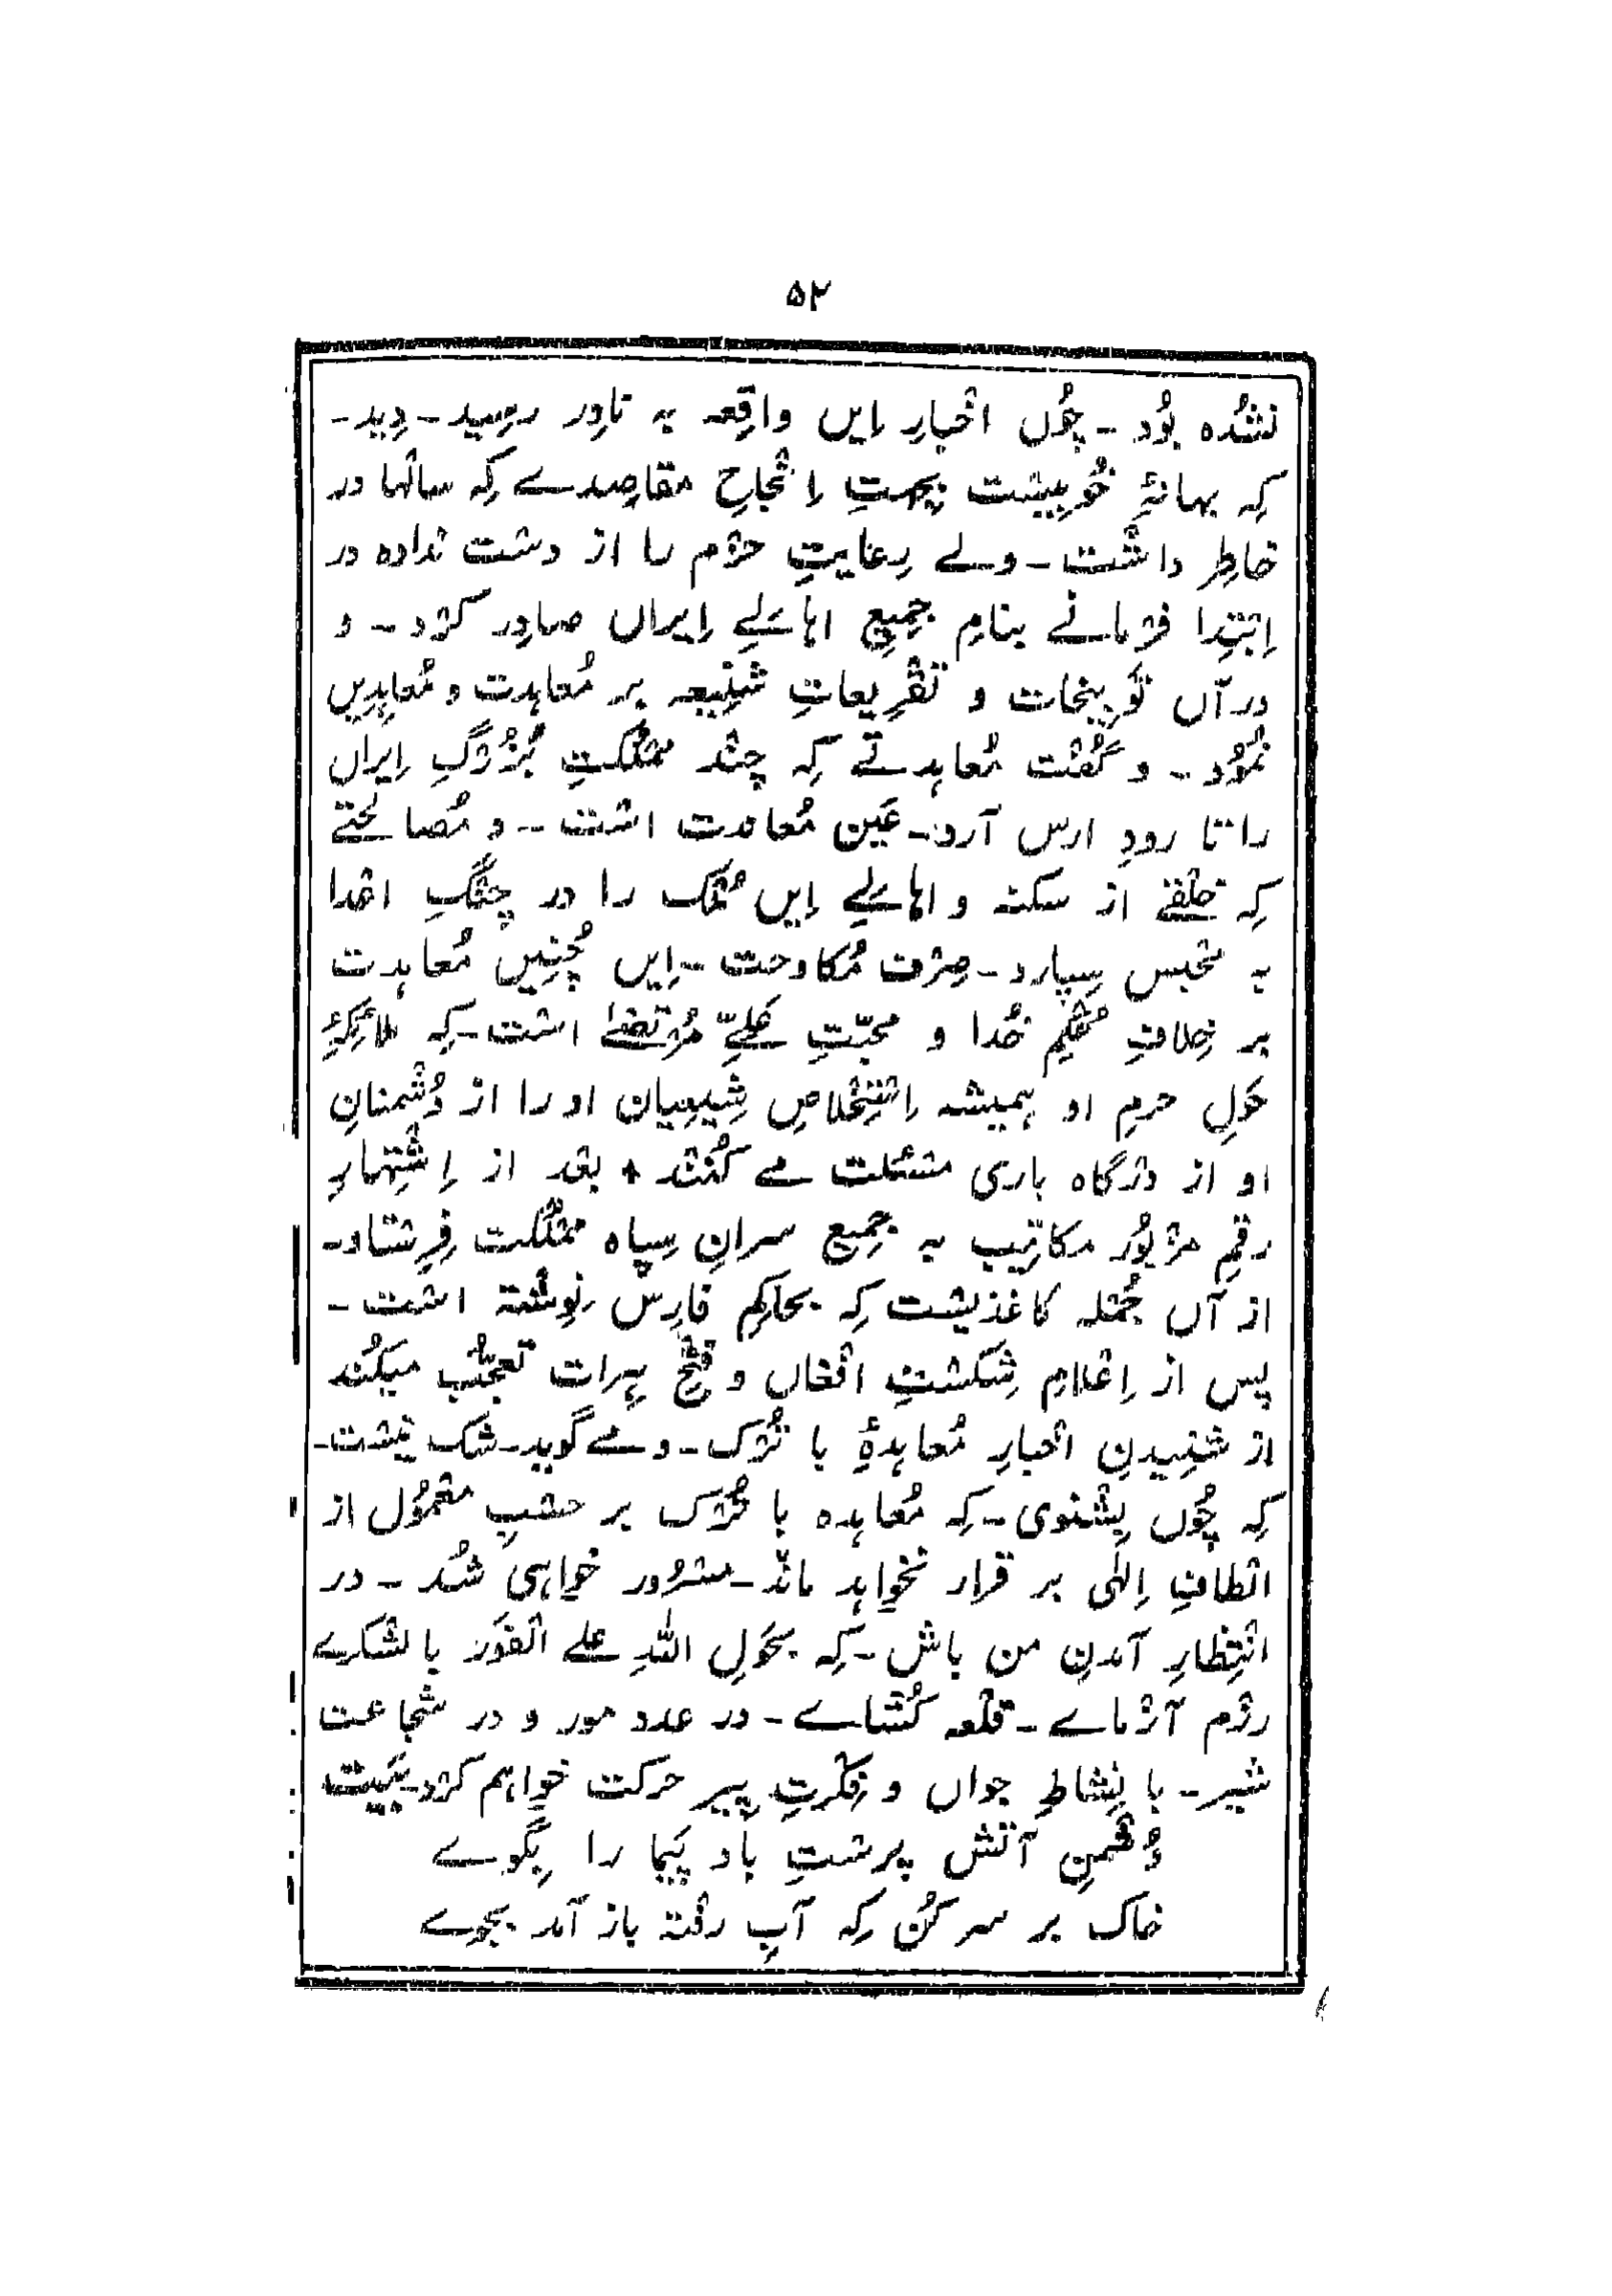 ۵۲
نشُده بُود - چُوں اخبارِ ایں واقِعہ بہ نادِر رسِید - دِید -
کہ بہانۂ خُوبیست بجہتِ اِنجاحِ مقاصِدے کِہ سالہا در
خاطِر داشت - ولے رِعایتِ حزم را از دست ندادہ در
اِبتِدا فرمانے بنامِ جمِیعِ اہالیِ اِیراں صادِر کرد - و
درآں توبِیخات و تقرِیعاتِ شنِیعہ بر مُعاہدت و مُعاہِدِیں
نمُود - و گُفت مُعاہدتے کِہ چند مملکتِ بُزُرگِ اِیراں
را تا رودِ ارس آرد - عَین مُعاندت است - و مُصالحتے
کِہ خلقے از سکنہ و اہالیِ اِیں مُلک را در چنگِ اعدا
بہ محبس سِپارد - صِرف مُکاوحت - اِیں چُنِیں مُعاہدت
بر خِلافِ حُکمِ خُدا و محبّتِ علیِّ مُرتضیٰ است - کِہ ملائِکۂ
حَولِ حرمِ او ہمیشہ اِستِخلاصِ شِیعِیان او را از دُشمنانِ
او از درگاہ باری مسئلت مے کُنند + بعد از اِشتِہارِ
رقمِ مزبُور مکاتِیب بہ جمِیع سرانِ سِپاہ مملکت فِرِستاد -
از آں جُملہ کاغذیست کِہ بحاکِم فارِس نِوِشتہ است -
پس از اِعلامِ شِکستِ افغاں و فتحِ ہِرات تعجُّب میکُند
از شنِیدنِ اخبارِ مُعاہدۂ با تُرک - و مے گوید - شک نیست -
کِہ چُوں بِشنوی - کِہ مُعاہدہ با تُرک بر حسبِ معمُول از
الطافِ اِلٰہی بر قرار نخواہد ماند - مسرُور خواہی شُد - در
انتِظارِ آمدنِ من باش - کِہ بحَولِ اللہِ علے الفَور با لشکرے
رزم آزماے - قلعہ کُشاے - در عدد مور و در شجاعت
شیر - با نِشاطِ جواں و فِکرتِ پِیر حرکت خواہم کرد - بَیت
دُشمنِ آتش پرستِ باد پَیما را بِگوے
خاک بر سر کُن کِہ آبِ رفتہ باز آمد بجوے